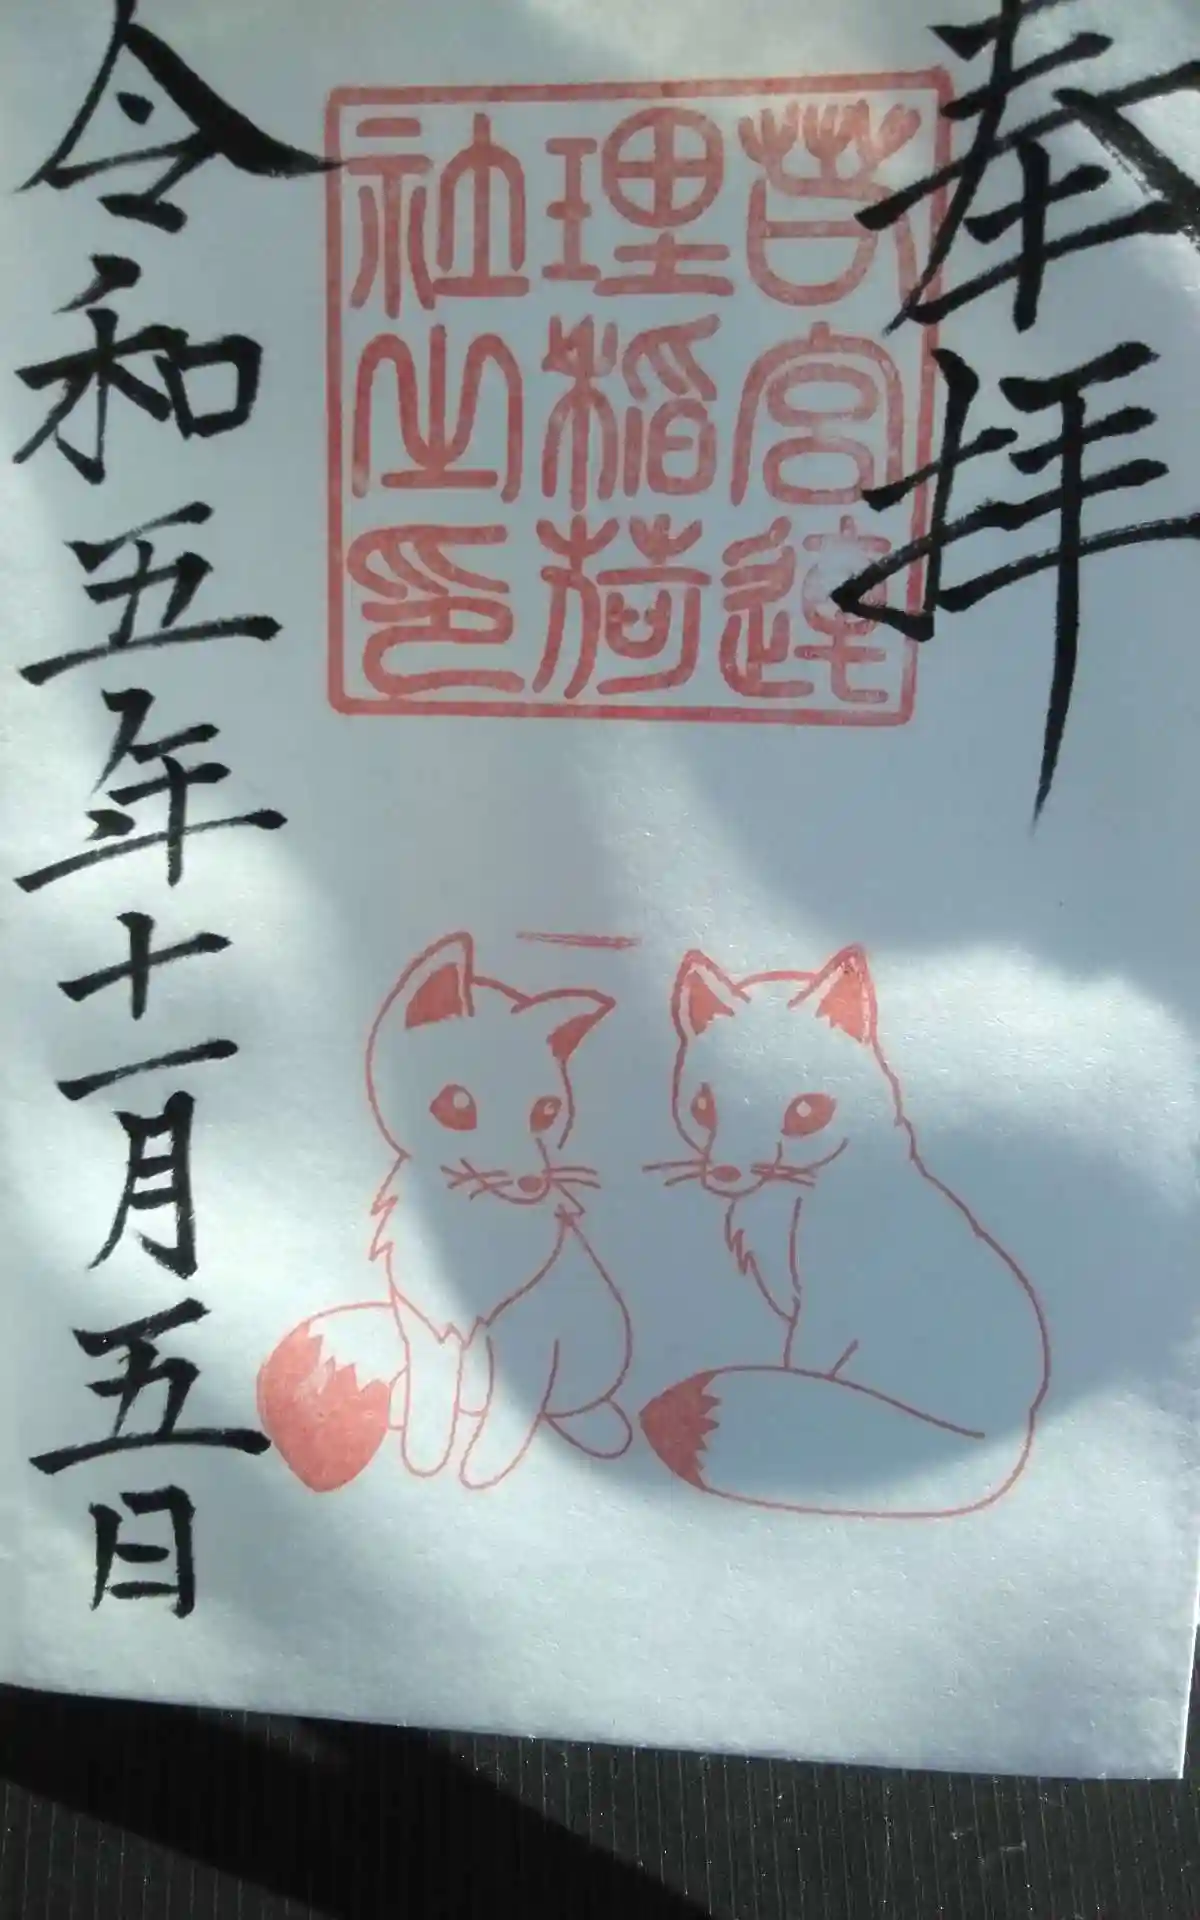 奉拝
若宮達
理稲荷
社之印
令和五年十一月五日